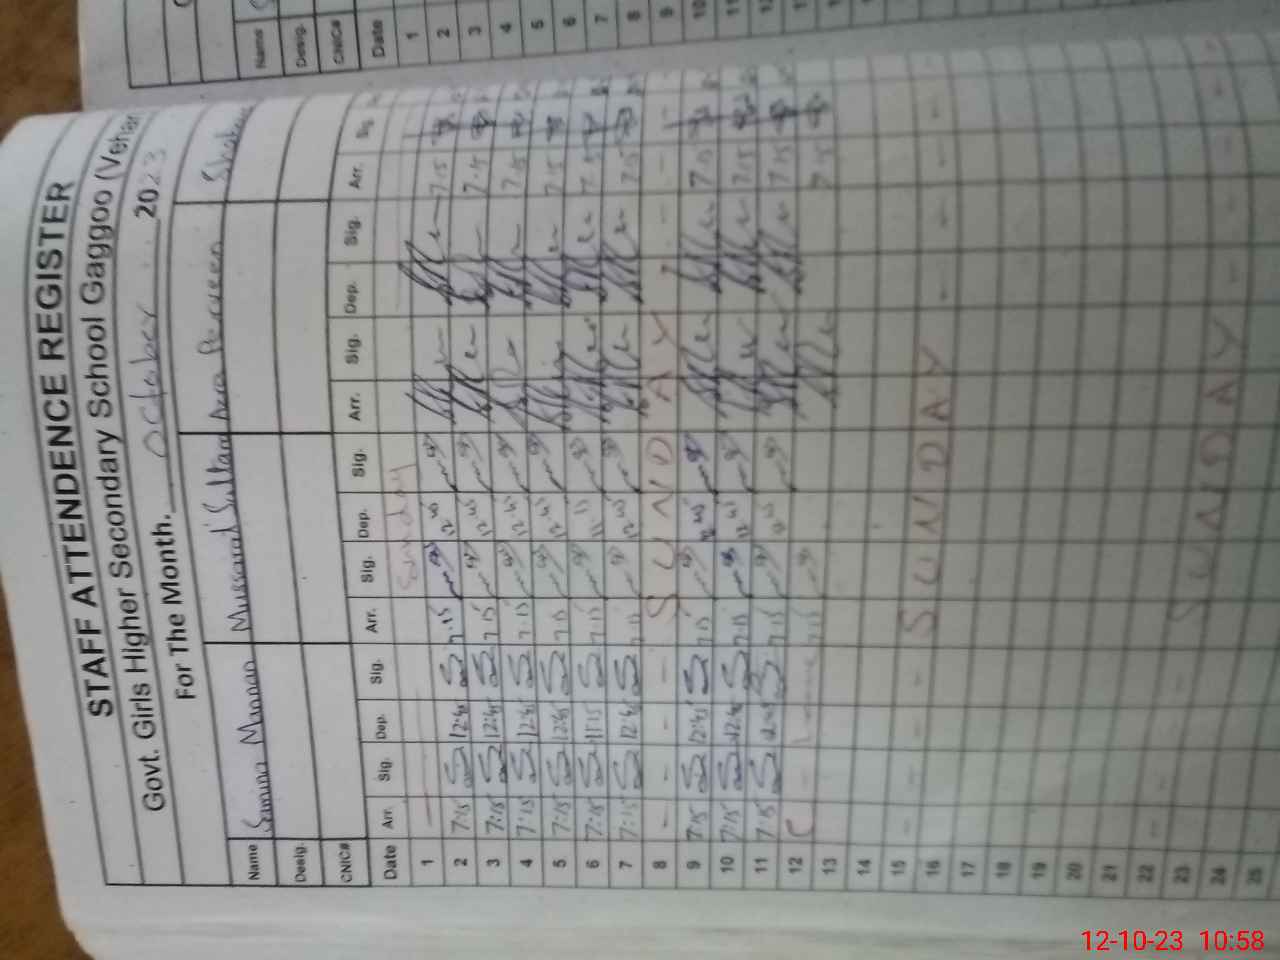 STAFF ATTENDENCE REGISTER
Govt. Girls Higher Secondary School Gaggoo (Vehar
For The Month. October 2023
Name Samina Mannan Mussarat Sultana Parveen
Desig.
CNIC#
Date Arr. Sig. Dep. Sig. Arr. Sig. Dep. Sig. Arr. Sig. Dep. Sig. Arr. Sig.
1 Sunday
2 7:15 12:45 7.15 12 45 7.15
3 7:15 12:45 7 15 12 45 7.15
4 7:15 12:45 7.15 12 45 7.15
5 7:15 12:45 7 15 12 45 7.15
6 7:15 11:15 7.15 11 15 7.15
7 7:15 12:45 7 15 12 45 7.15
8 - - - - SUNDAY - -
9 7:15 12:45 7 15 12 45 7.15
10 7:15 12:45 7.15 12 45 7.15
11 7:15 12:45 7.15 12 45 7.15
12 7.15
13
14
15 SUNDAY
16
17
18
19
20
21
22
23 SUNDAY
24
25
Name
Desig.
CNIC#
Date
1
2
3
4
5
6
7
8
9
10
11
12
13
12-10-23 10:58